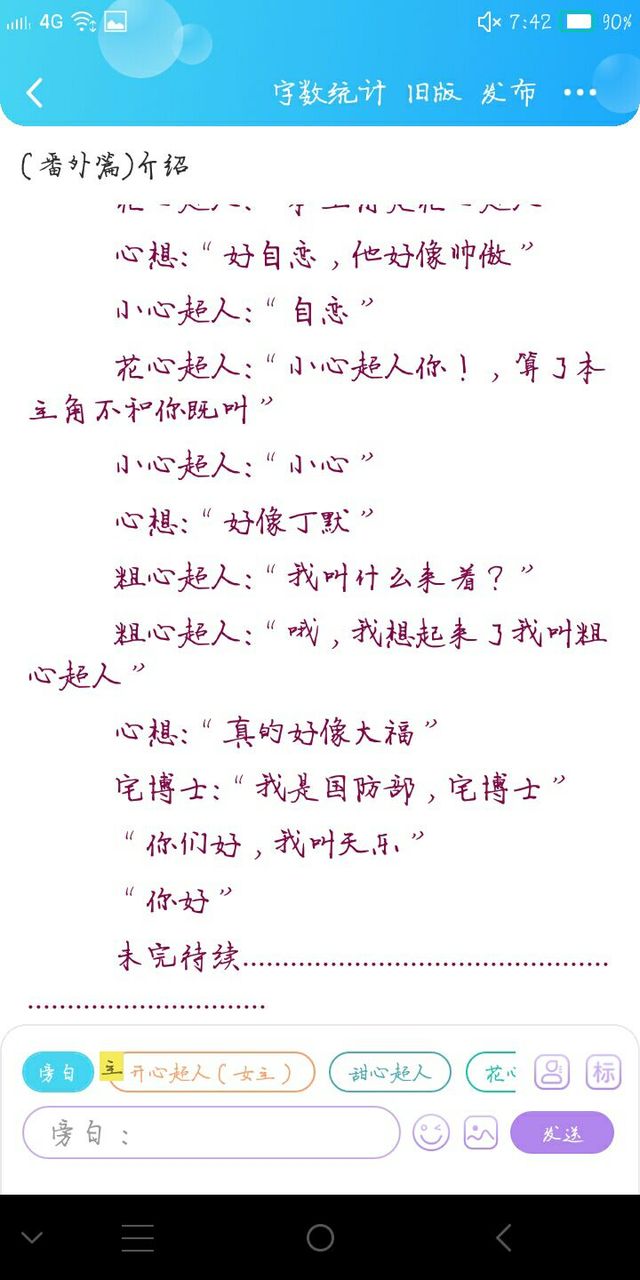 4G 7:42 90%
字数统计 旧版 发布
(番外篇)介绍
心想:“好自恋,他好像帅傲”
小心超人:“自恋”
花心超人:“小心超人你!,算了本
主角不和你既叫”
小心超人:“小心”
心想:“好像丁默”
粗心超人:“我叫什么来着?”
粗心超人:“哦,我想起来了我叫粗
心超人”
心想:“真的好像大福”
宅博士:“我是国防部,宅博士”
“你们好,我叫天乐”
“你好”
未完待续..............................................
..............................
旁白 主 开心超人(女主) 甜心超人 花心 标
旁白: 发送